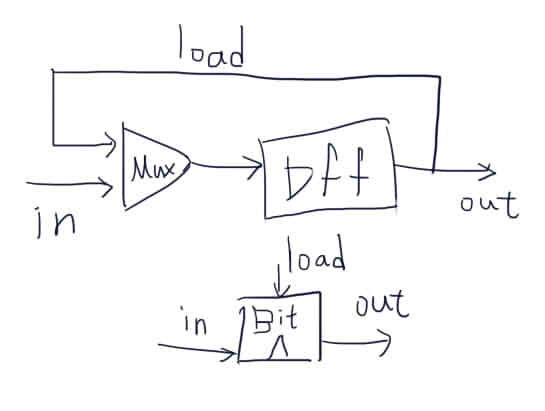 load
Mux
Dff
in
out
load
in
Bit
out